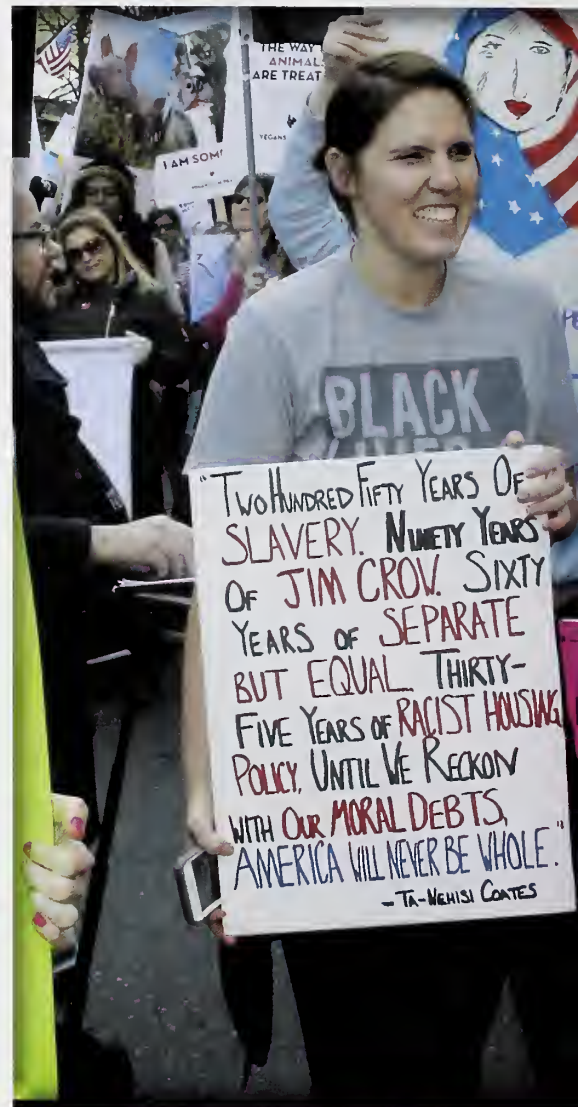 THE WAY
ANIMALS
ARE TREAT
VEGANS
I AM SOM
BLACK
"Two Hundred Fifty Years Of
SLAVERY. Ninety Years
Of JIM CROW. Sixty
Years of SEPARATE
BUT EQUAL. Thirty-
Five Years of RACIST HOUSING
POLICY. Until We Reckon
with Our MORAL DEBTS,
AMERICA WILL NEVER BE WHOLE."
- Ta-Nehisi Coates